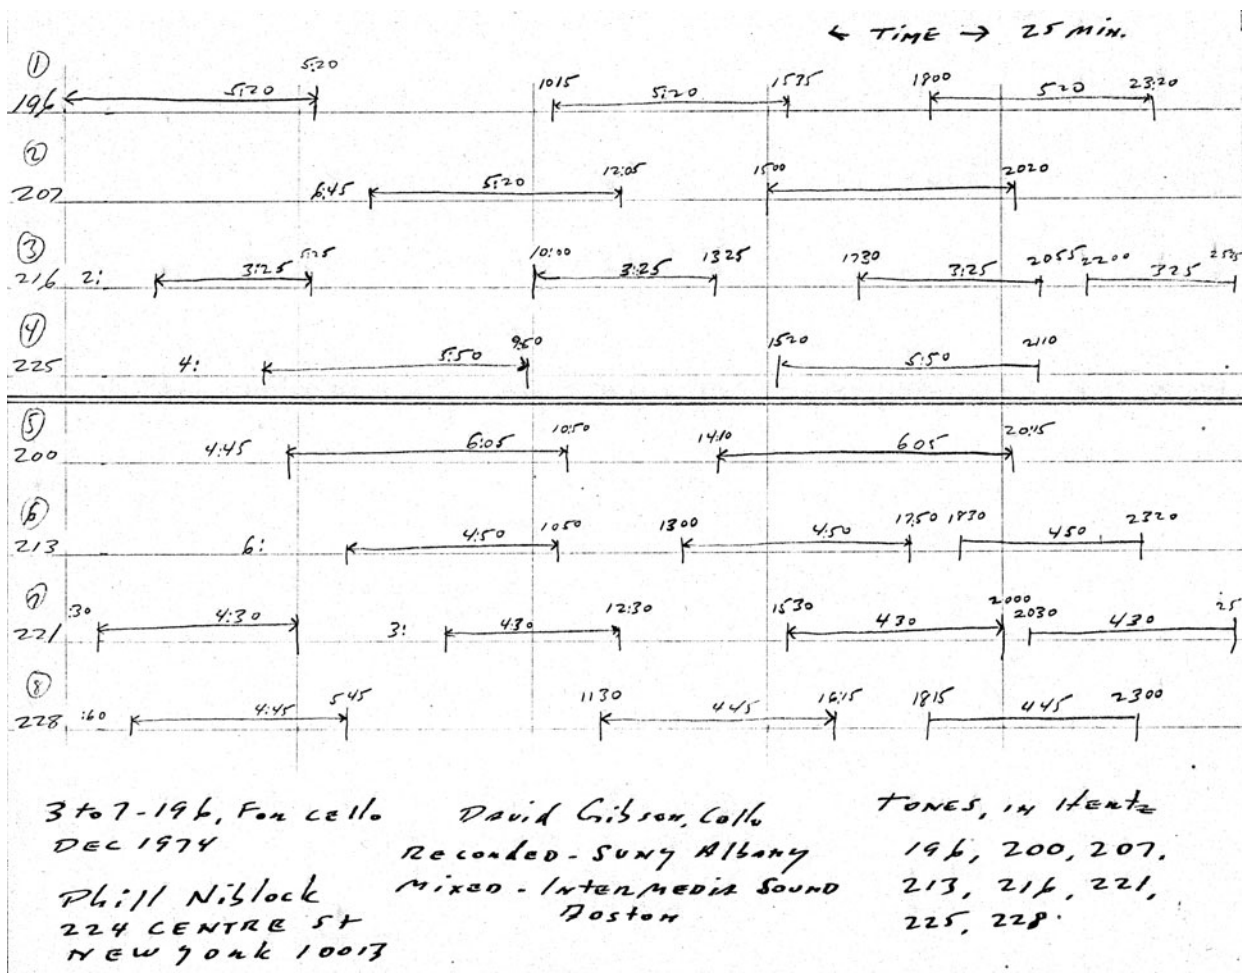 ← TIME → 25 MIN.
① 5:20 5:20 1015 5:20 1535 1800 520 23:20
196
② 6:45 5:20 12:05 1500 2020
207
③ 2: 3:25 5:25 10:00 3:25 1325 1730 3:25 2055 2200 325
216
④ 4: 5:50 9:50 1520 5:50 2110
225
⑤ 4:45 6:05 10:50 14:10 605 20:15
200
⑥ 6: 4:50 1050 1300 4:50 1750 1830 450 2320
213
⑦ :30 4:30 3: 430 12:30 1530 430 2000 2030 430 25
221
⑧ :60 4:45 545 1130 445 16:15 1815 445 2300
228
3 to 7-196, For cello
DEC 1974
Phill Niblock
224 CENTRE St
NEW YORK 10013
David Gibson, Cello
Recorded - SUNY Albany
Mixed - Intermedia Sound
Boston
TONES, in Hertz
196, 200, 207,
213, 216, 221,
225, 228.